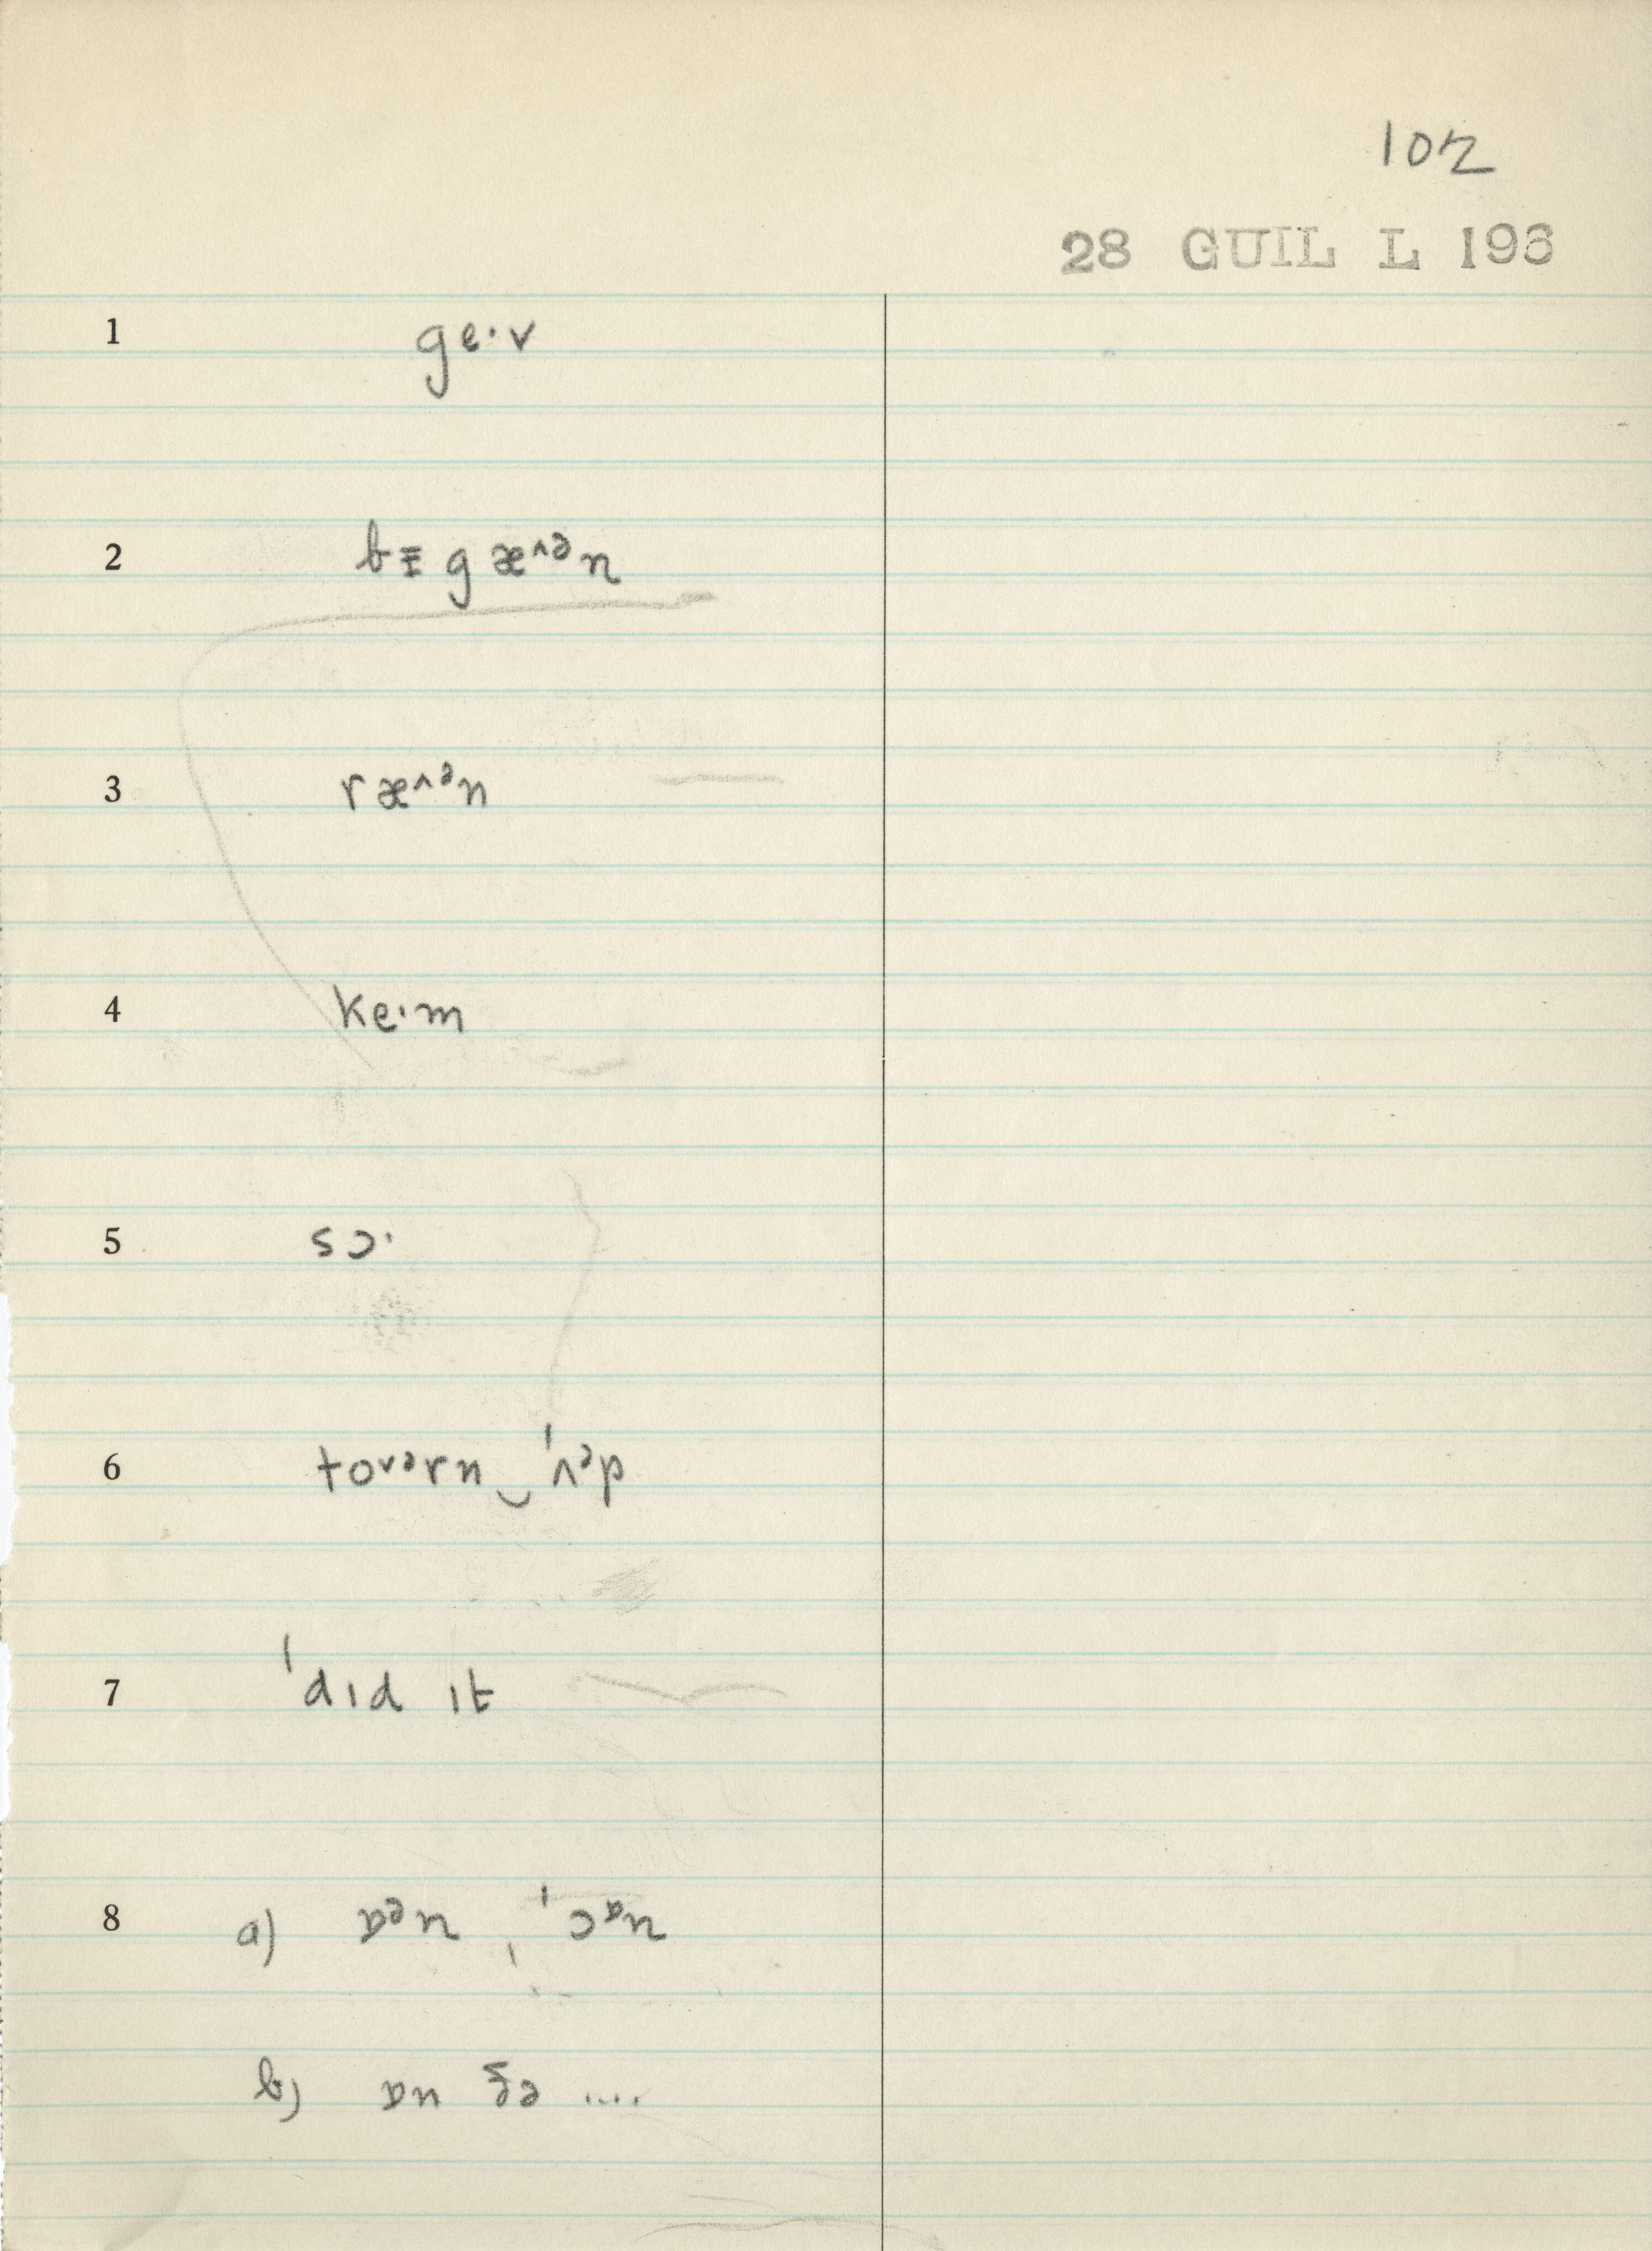 102
28 GUIL L 196
1 ge·v
2 bɪ̵gæ^ᵊn
3 ræ^ᵊn
4 ke·m
5 sɔ·
6 toᵛᵊrn‿ˈʌᵊp
7 ˈdɪd ɪt
8 a) ɒᵊn , ˈɔᶛn
b) ɒn ðə ....